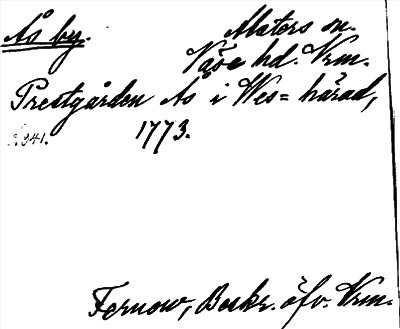 Ås by. Alsters sn.
Väse hd. Vrm.
Prestgården As i Wes= härad,
1773.
s. 341.
Fernow, Beskr. öfv. Vrm.